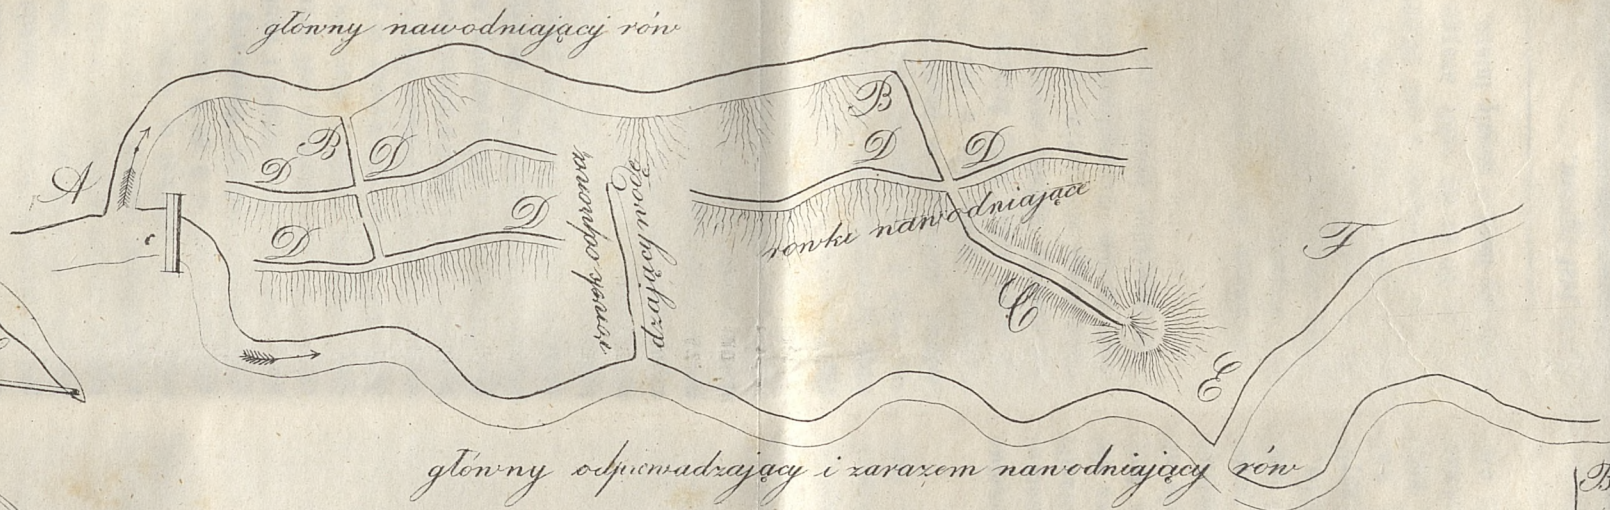 główny nawodniający rów
A
B
D
D
D
D
B
D
D
rowek odprowa
dzający wodę
rowki nawodniające
C
c
F
E
główny odprowadzający i zarazem nawodniający rów
B